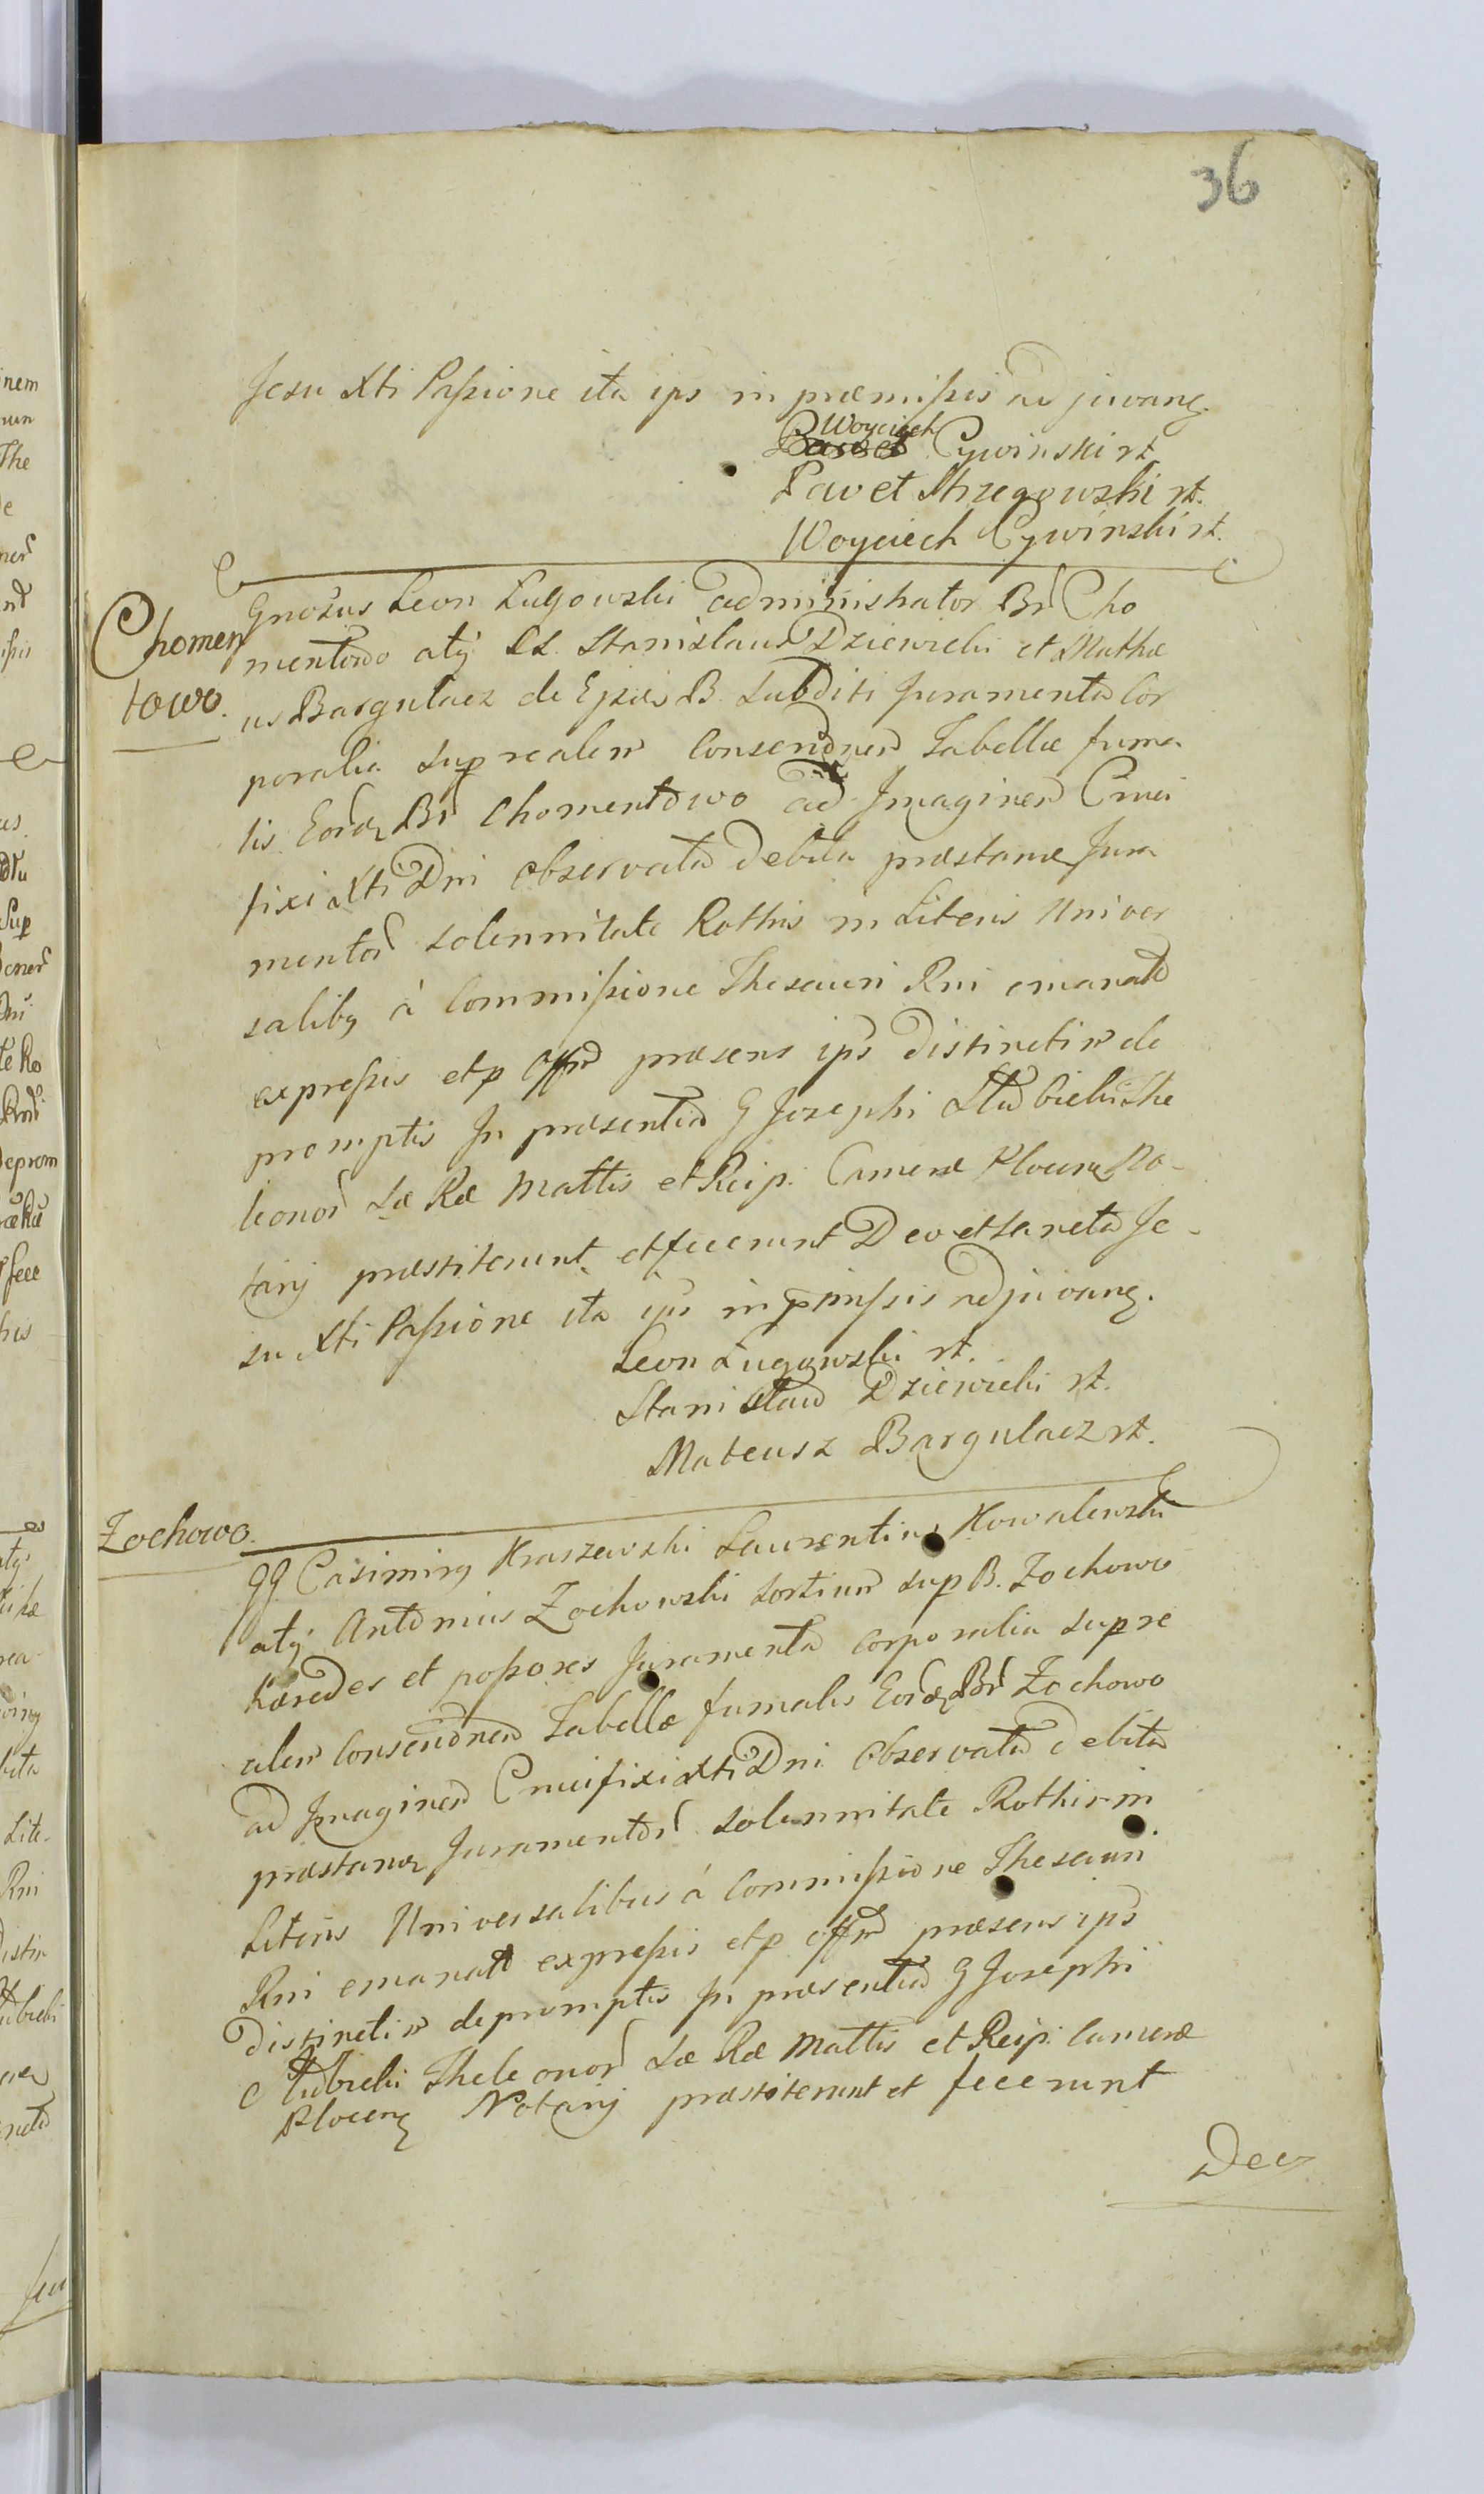 36
Jesu Xti Passione ita ips in præmissis adjuvanę.
Woyciech
Cywinski rt
Paweł Strzegowski rt.
Woyciech Cywinski rt.
Chomen
towo.
Gnosus Leon Lugowski administrator Br Cho
mentowo atq LL. Stanislaus Dziewicki et Mathæ
us Bargulacz de Ejsdes B. Subditi Juramenta Cor
poralia Sup realem Consendnem Tabellæ fuma
lis Eordz Br Chomentowo ad Imaginem Cruci
fixi Xti Dni Observata debita præstanę Jura
mentor solennitate Rothis in Literis Univer
salibg à Commissione Thesauri Rni emanatis
expressis et p Offm præsens ips distinctim de
promptis In præsentia G Josephi Stubicki The
leonor Sæ Ræ Mattis et Reip. Cameræ Plocenę No-
tarij præstiterunt et fecerunt Deo et Sancta Je-
su Xti Passione ita ips in pmissis adjuvanę.
Leon Lugowski rt.
Stanisław Dziewicki rt.
Mateusz Bargulacz rt.
Zochowo.
GG. Casimirg Kraszewski Laurentius Kowalewski
atq Antonius Zochowski Sortium sup B. Zochowo
hæredes et possores Juramenta corporalia sup re
alem Consendnem Tabellæ fumalis Eordz Br Zochowo
ad Imaginem Crucifixi Xti Dni Observata debita
præstanę Juramentor solennitate Rothis in
Literis Universalibus à Commissione Thesauri
Rni emanatt expressis et p offm præsens ips
distinctim depromptis In præsentia G Josephi
Stubicki Theleonor Sæ Ræ Mattis et Reip. Cameræ
Plocenę Notarij præstiterunt et fecerunt
Deo